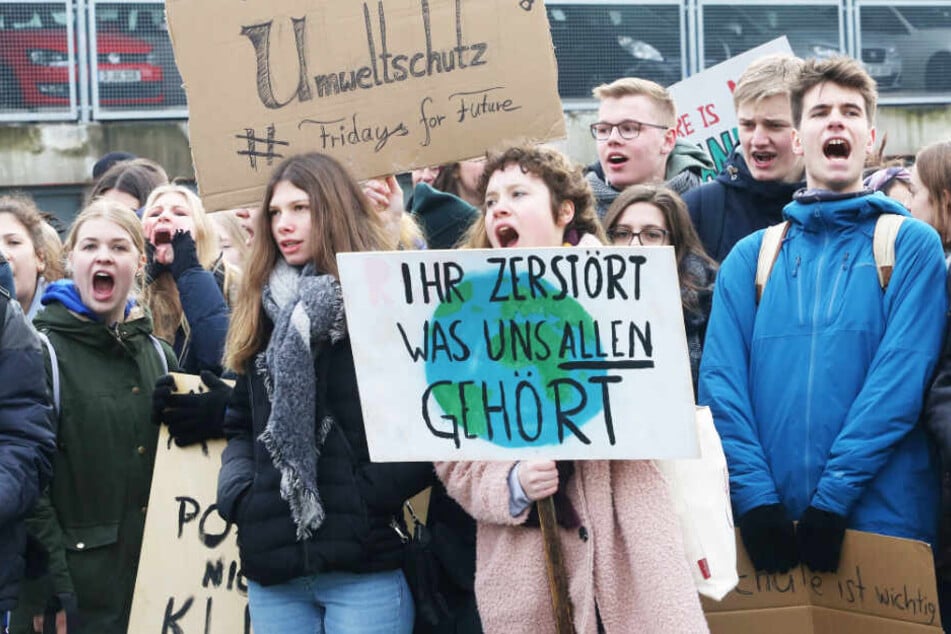 Umweltschutz
# Fridays for Future
IHR ZERSTÖRT
WAS UNS ALLEN
GEHÖRT
RE IS
PO
NI
KL
ist wichtig